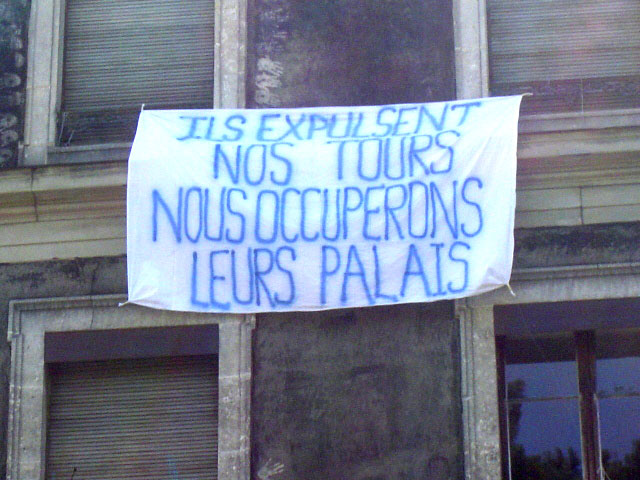 ILS EXPULSENT
NOS TOURS
NOUS OCCUPERONS
LEURS PALAIS